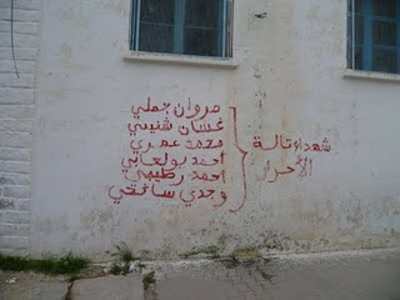 مروان جملي
غسان شنيتي
محمد عمري
احمد بولعابي
احمد رطيبي
وجدي سائحي
شهداء تالة
الأحرار